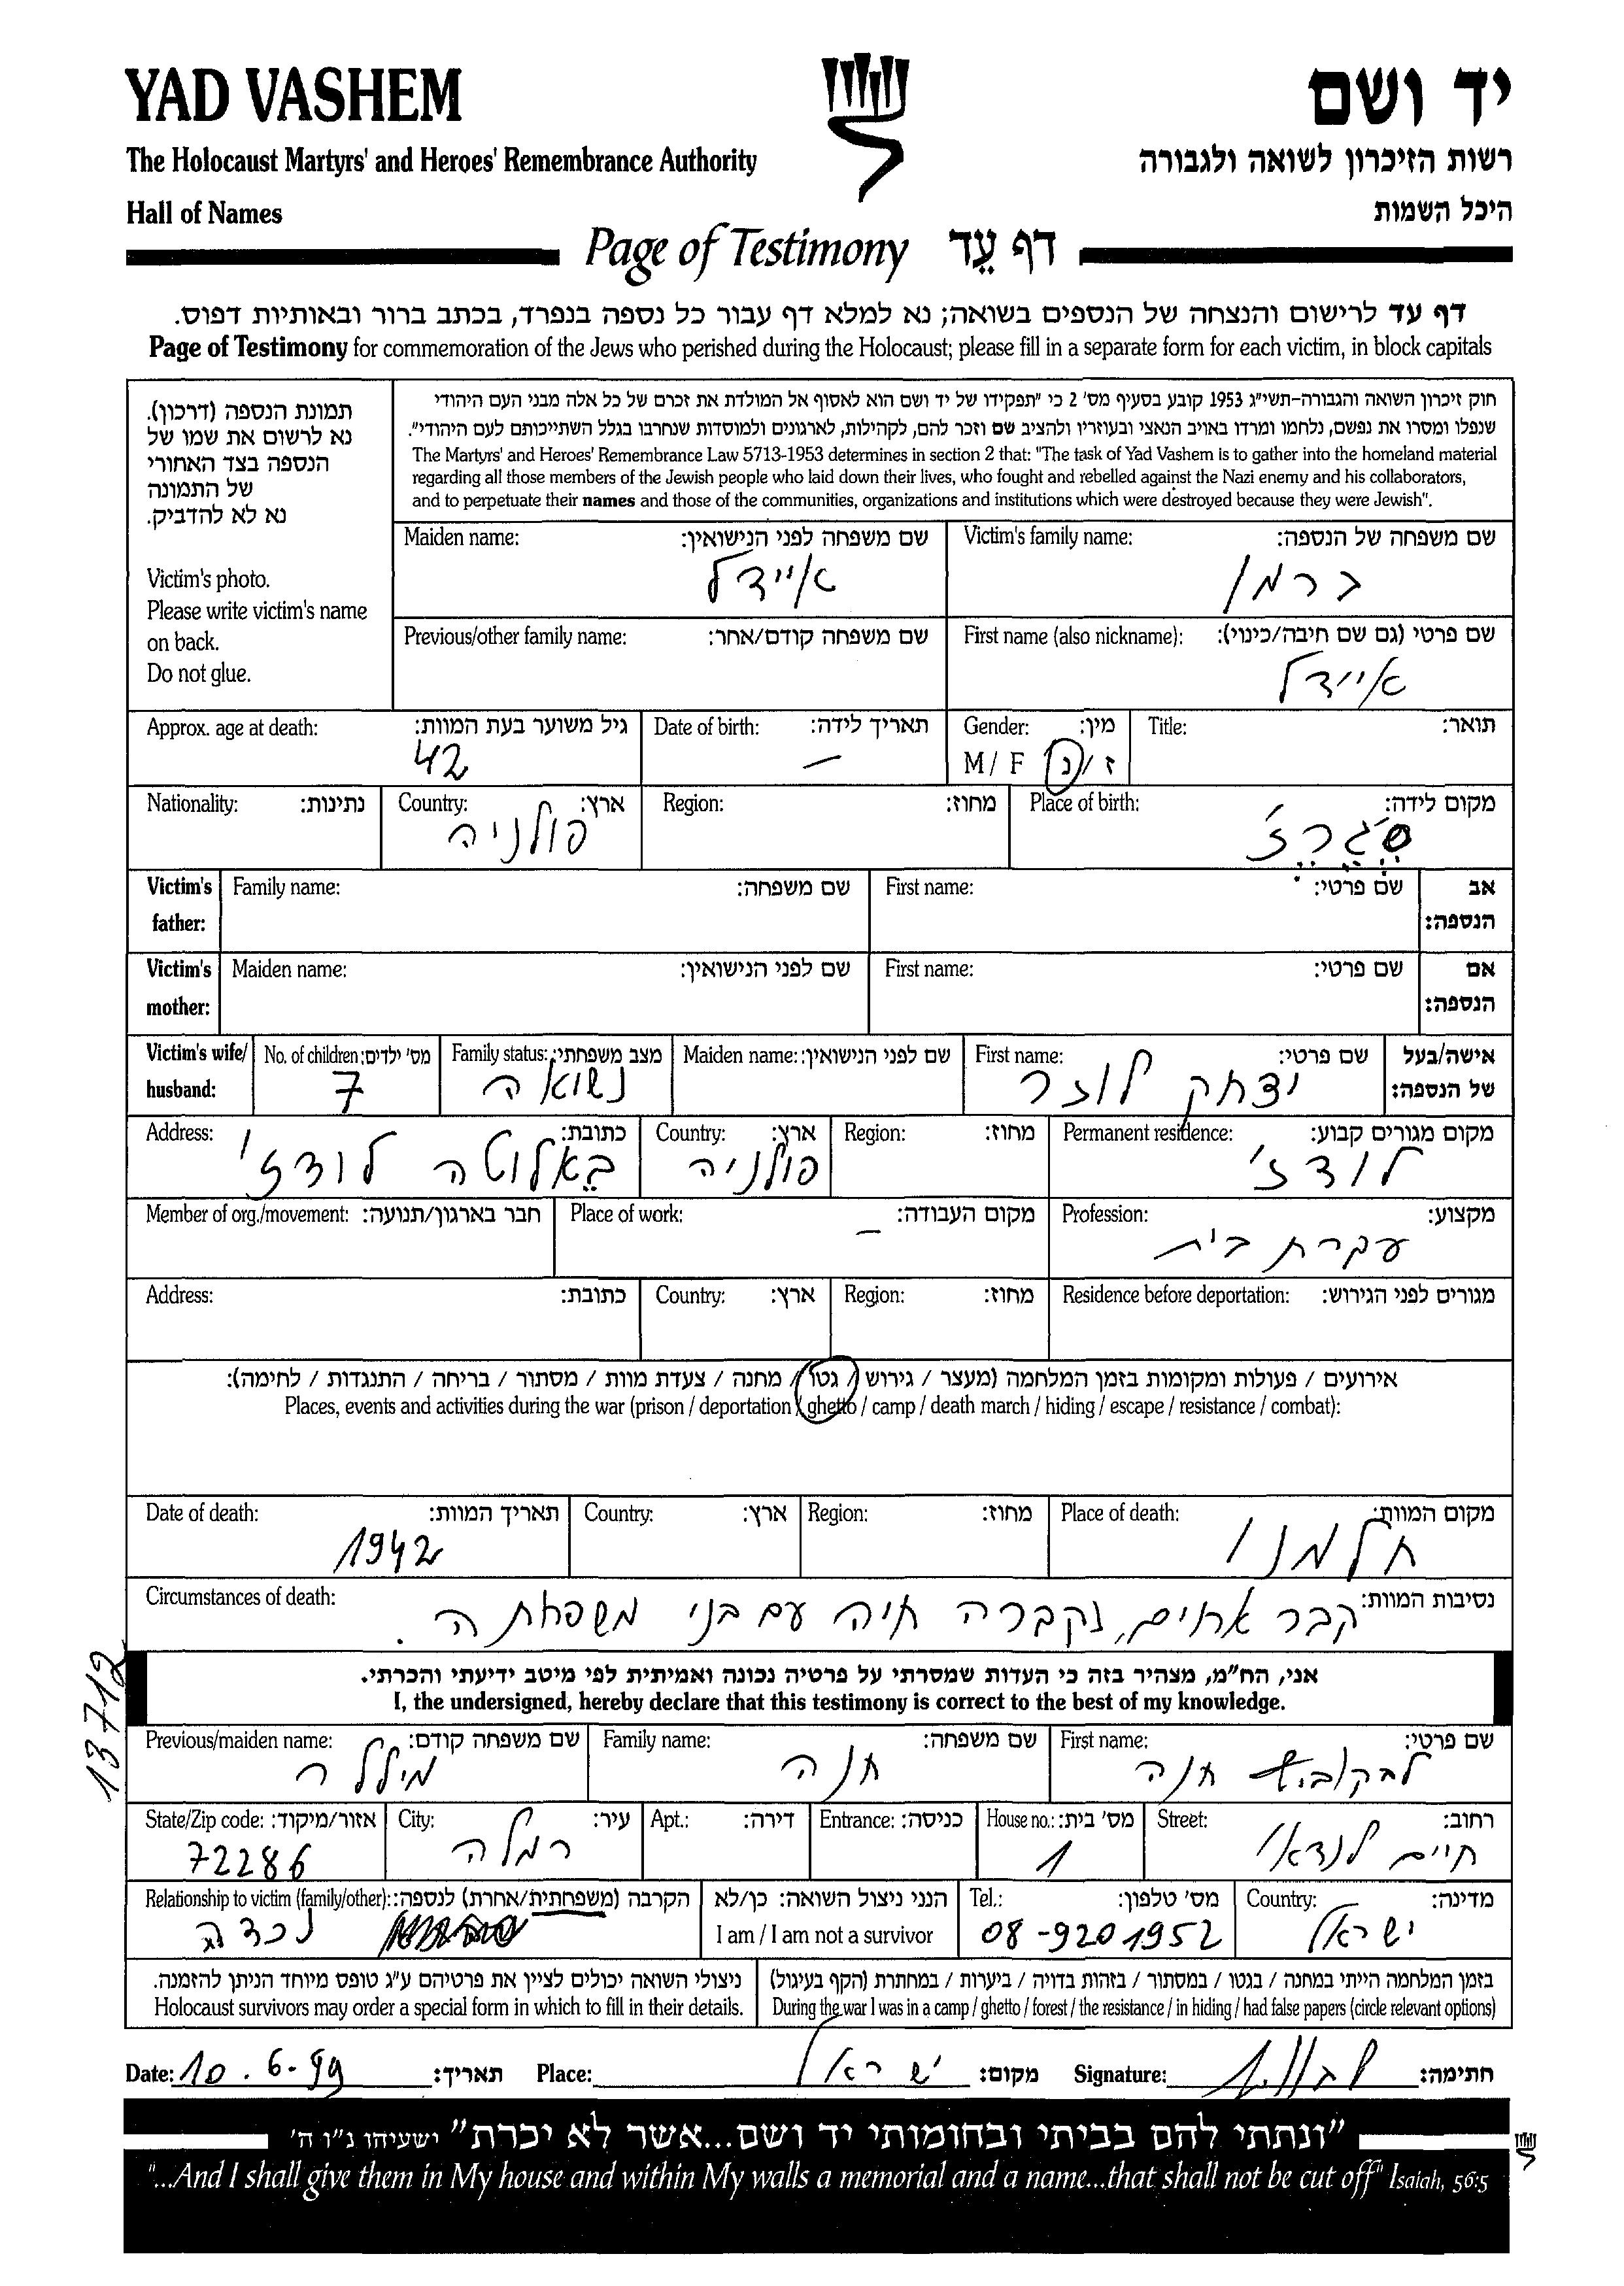 YAD VASHEM
יד ושם
The Holocaust Martyrs' and Heroes' Remembrance Authority
רשות הזיכרון לשואה ולגבורה
Hall of Names
היכל השמות
Page of Testimony דף עֵד
דף עד לרישום והנצחה של הנספים בשואה; נא למלא דף עבור כל נספה בנפרד, בכתב ברור ובאותיות דפוס.
Page of Testimony for commemoration of the Jews who perished during the Holocaust; please fill in a separate form for each victim, in block capitals
תמונת הנספה (דרכון).
נא לרשום את שמו של
הנספה בצד האחורי
של התמונה
נא לא להדביק.
Victim's photo.
Please write victim's name
on back.
Do not glue.
חוק זיכרון השואה והגבורה-תשי"ג 1953 קובע בסעיף מס' 2 כי "תפקידו של יד ושם הוא לאסוף אל המולדת את זכרם של כל אלה מבני העם היהודי
שנפלו ומסרו את נפשם, נלחמו ומרדו באויב הנאצי ובעוזריו ולהציב שם וזכר להם, לקהילות, לארגונים ולמוסדות שנחרבו בגלל השתייכותם לעם היהודי".
The Martyrs' and Heroes' Remembrance Law 5713-1953 determines in section 2 that: "The task of Yad Vashem is to gather into the homeland material
regarding all those members of the Jewish people who laid down their lives, who fought and rebelled against the Nazi enemy and his collaborators,
and to perpetuate their names and those of the communities, organizations and institutions which were destroyed because they were Jewish".
Victim's family name: שם משפחה של הנספה:
ברמן
Maiden name: שם משפחה לפני הנישואין:
איידל
First name (also nickname): שם פרטי (גם שם חיבה/כינוי):
איידל
Previous/other family name: שם משפחה קודם/אחר:
Title: תואר:
Gender: מין:
M / F ז / נ
Date of birth: תאריך לידה:
–
Approx. age at death: גיל משוער בעת המוות:
42
Place of birth: מקום לידה:
Region: מחוז:
Country: ארץ:
פולניה
Nationality: נתינות:
Victim's father: אב הנספה:
First name: שם פרטי:
Family name: שם משפחה:
Victim's mother: אם הנספה:
First name: שם פרטי:
Maiden name: שם לפני הנישואין:
Victim's wife/ husband: אישה/בעל של הנספה:
First name: שם פרטי:
יצחק לוזר
Maiden name: שם לפני הנישואין:
Family status: מצב משפחתי:
נשואה
No. of children: מס' ילדים:
7
Permanent residence: מקום מגורים קבוע:
לודז'
Region: מחוז:
Country: ארץ:
פולניה
Address: כתובת:
באלוטה לודז'
Profession: מקצוע:
עקרת בית
Place of work: מקום העבודה:
–
Member of org./movement: חבר בארגון/תנועה:
Residence before deportation: מגורים לפני הגירוש:
Region: מחוז:
Country: ארץ:
Address: כתובת:
אירועים / פעולות ומקומות בזמן המלחמה (מעצר / גירוש / גטו / מחנה / צעדת מוות / מסתור / בריחה / התנגדות / לחימה):
Places, events and activities during the war (prison / deportation / ghetto / camp / death march / hiding / escape / resistance / combat):
Place of death: מקום המוות:
חלמנו
Region: מחוז:
Country: ארץ:
Date of death: תאריך המוות:
1942
Circumstances of death: נסיבות המוות:
קבר אחים, נקברה חיה עם בני משפחתה.
13712
אני, הח"מ, מצהיר בזה כי העדות שמסרתי על פרטיה נכונה ואמיתית לפי מיטב ידיעתי והכרתי.
I, the undersigned, hereby declare that this testimony is correct to the best of my knowledge.
First name: שם פרטי:
חנה
Family name: שם משפחה:
חנה
Previous/maiden name: שם משפחה קודם:
מילר
Street: רחוב:
חיים לנדאו
House no.: מס' בית:
1
Entrance: כניסה:
Apt.: דירה:
City: עיר:
רמלה
State/Zip code: אזור/מיקוד:
72286
Country: מדינה:
ישראל
Tel.: מס' טלפון:
08-9201952
הנני ניצול השואה: כן/לא
I am / I am not a survivor
Relationship to victim (family/other): הקרבה (משפחתית/אחרת) לנספה:
נכדה
בזמן המלחמה הייתי במחנה / בגטו / במסתור / בזהות בדויה / ביערות / במחתרת (הקף בעיגול)
During the war I was in a camp / ghetto / forest / the resistance / in hiding / had false papers (circle relevant options)
ניצולי השואה יכולים לציין את פרטיהם ע"ג טופס מיוחד הניתן להזמנה.
Holocaust survivors may order a special form in which to fill in their details.
Date: 10.6-99 תאריך: Place: ישראל מקום: Signature: חתימה:
"ונתתי להם בביתי ובחומותי יד ושם...אשר לא יכרת" ישעיהו נ"ו ה'
"...And I shall give them in My house and within My walls a memorial and a name...that shall not be cut off" Isaiah, 56:5